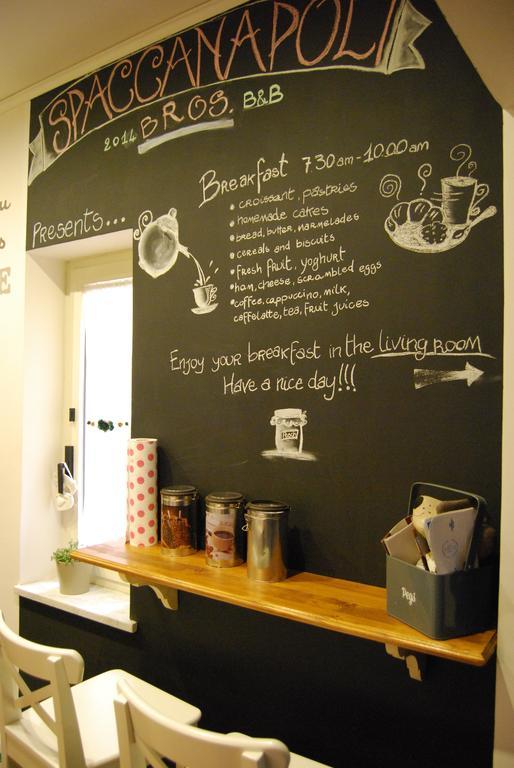 SPACCANAPOLI
2014 BROS. B&B
Presents...
Breakfast 7.30am-10.00am
• croissant, pastries
• homemade cakes
• bread, butter, marmelades
• cereals and biscuits
• fresh fruit, yoghurt
• ham, cheese, scrambled eggs
• coffee, cappuccino, milk,
caffelatte, tea, fruit juices
Enjoy your breakfast in the living room
Have a nice day!!!
Pegs